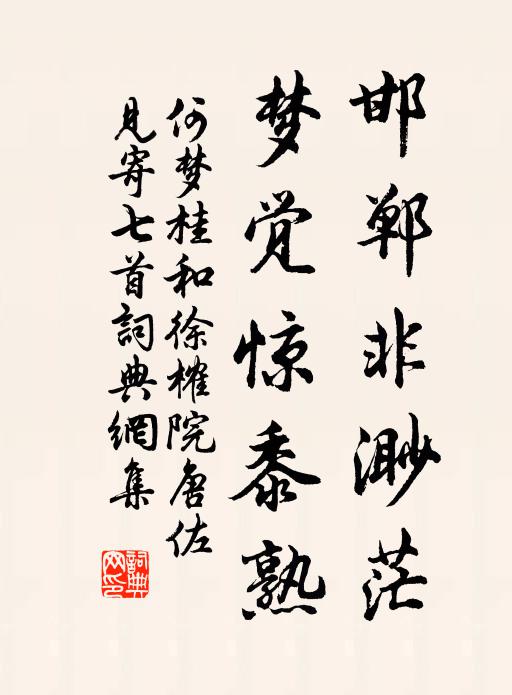 邯郸非渺茫
梦觉惊黍熟
何梦桂和徐榷院唐佐
见寄七首詞典網集
詞典
网印